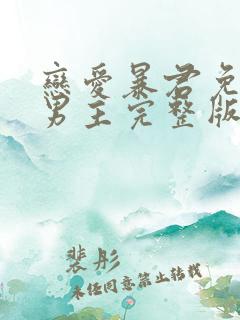 戀愛暴君免
男主完整版
裴彤
未经同意禁止转载